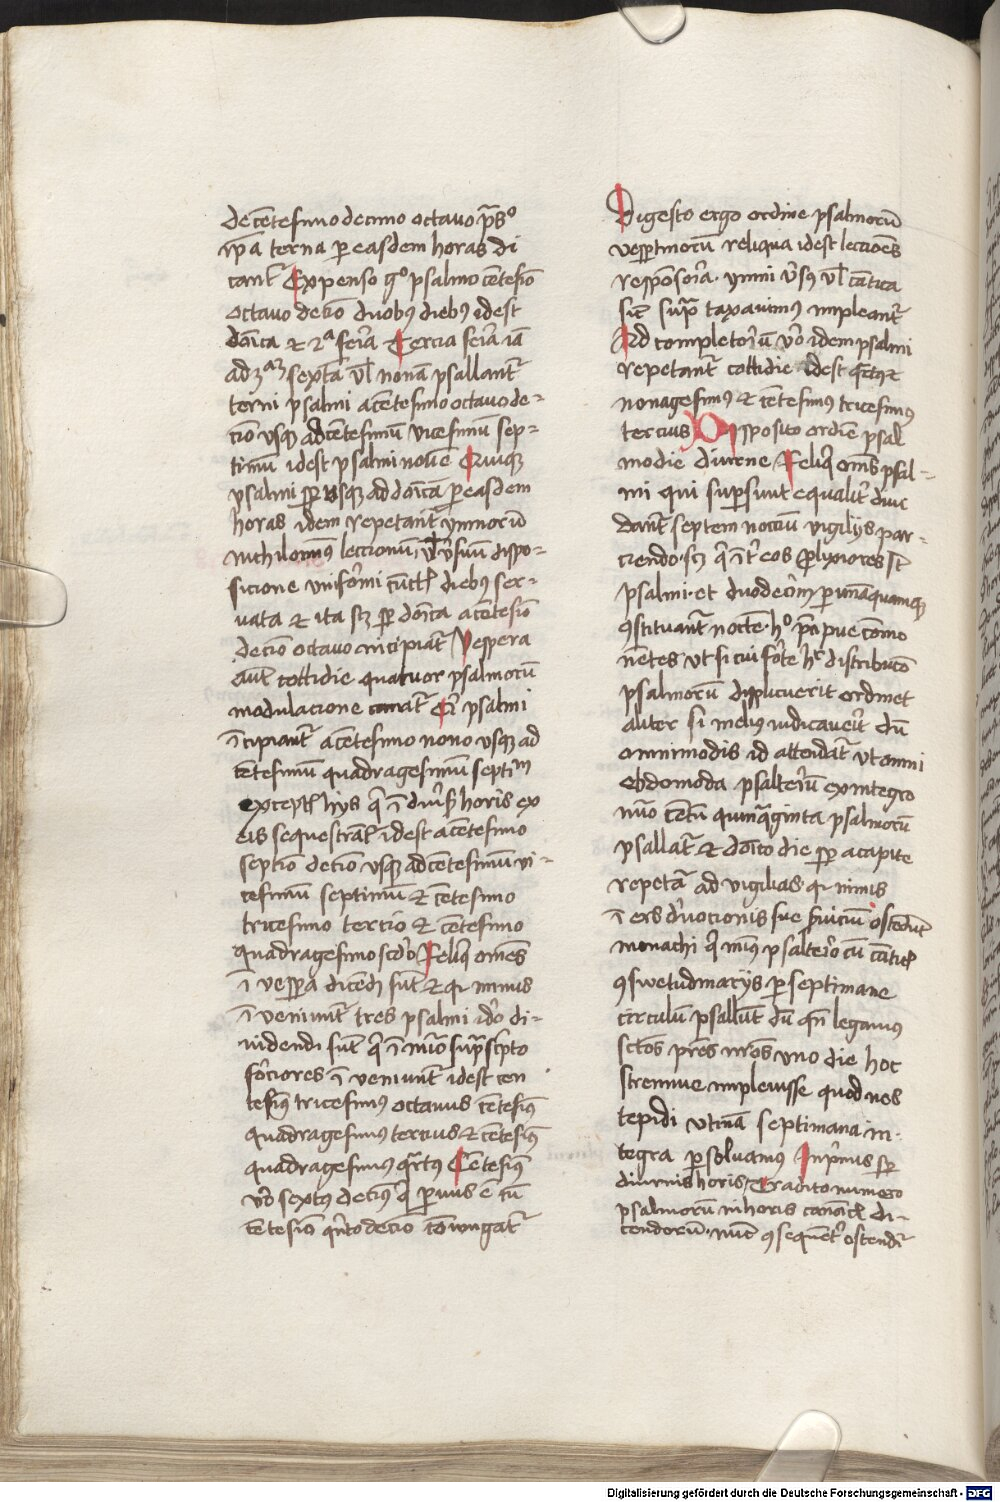 de cētesimo decimo octauo p̄s°
rp̄a terna p̱ easdem horas di
cant᷑ Expenso g° psalmo cētesīo
octauo decīo duobꝯ diebꝯ idest
dn̄ica ⁊ 2ᵃ feīa Tercia feīa iā
ad 3ᵃᵐ sextā vl̄ nonā psallant᷑
terni psalmi a cētesimo octauo de-
cīo vsqꝫ ad cētesimū vicesimū sep-
timū idest psalmi nouē Quiqꝫ
psalmi sp̱ vsqꝫ ad dn̄icā p̱ easdem
horas idem repetant᷑ ymnorū
nichilomīꝯ leccionū vl̄ v̓suū dispo-
sicione vnifor̄mi cūct̄ diebꝯ ser-
uata ⁊ ita scꝫ sp̱ dn̄ica a cētesīo
decīo octauo incipiat᷑ Vespera
aūt cottidie quatuor psalmorū
modulacione canat᷑ Qī psalmi
īcipiant᷑ a cētesimo nono vsqꝫ ad
cētesimū quadragesimū septīm
except̄ hijs q̄ ī diu̓s̄ horis ex
eis sequestrāt᷑ idest a cētesimo
septīo decīo vsqꝫ ad cētesimū vi-
cesimū septimū ⁊ cētesimo
tricesimo tercīo ⁊ cētesimo
quadragesimo scd̄o Reliq̄ omēs
ī vesp̱a dicēdi sūt ⁊ qr minus
ī veniunt᷑ tres psalmi id̄o di-
uidendi sūt q̄ ī nūo sup̄sc̄pto
for̄ciores ī veniunt᷑ idest cen
tesīꝯ tricesimꝯ octauus cētesīꝯ
quadragesimus tercius ⁊ cētesīꝯ
quadragesimus q̄rtꝯ Cētesīꝯ
v̓o sextꝯ decīꝯ q̄ p̱uus ē cū
cētesīo q̄nto decīo cōiungat᷑
Digesto ergo ordine psalmorū
vesp̱tinorū reliqua idest lectiōes
respōsor̄ia ymni v̓sꝯ vl̄ cātica
sic̄ sup̄ taxauimꝯ impleant᷑
Ad completor̄iū v̓o idem psalmi
repetant᷑ cottidie idest q̄rtꝯ ⁊
nonagesimꝯ ⁊ cētesimꝯ tricesimꝯ
tercius Disposito ordīe psal
modie diurne Reliq̄ om̄s psal-
mi qui sup̱sunt equalit̓ diui
dant᷑ septem noctiū vigilijs par-
ciendo scꝫ q̄ īt̓ eos p̱lixiores s̄t
psalmi et duodecim p̱ vnāquamqꝫ
ꝯstituant᷑ noctē h° p̄cipue cōmo
nētes vt si cui for̄te h᷑ distribucō
psalmorū displicuerit ordinet
aliter si meliꝯ iudicauerīt dū
omnimodis id attendat᷑ vt omni
ebdomoda psalter̄iū ex integro
nūo cētū quinq̄ginta psalmorū
psallat᷑ ⁊ dn̄ico die sp̱ a capite
repetat᷑ ad vigilias qr nimis
ī ers d̓uocionis sue s̓uiciū ostendūt
monachi q̄ minꝯ psalter̄io cū cātic̄
ꝯswetudinarijs p̱ septimane
circulū psallūt dū qn̄ legamus
sc̄tos p̄res nr̄os vno die hoc
strennue impleuisse quod nos
tepidi vtinā septimana in-
tegra p̱soluamꝯ Inp̄mis sp̱
diurnis horis Tradito numero
psalmorū in horis canōic̄ di-
cendorū nūc ꝯsequēt᷑ ostendit᷑
Digitalisierung gefördert durch die Deutsche Forschungsgemeinschaft - DFG